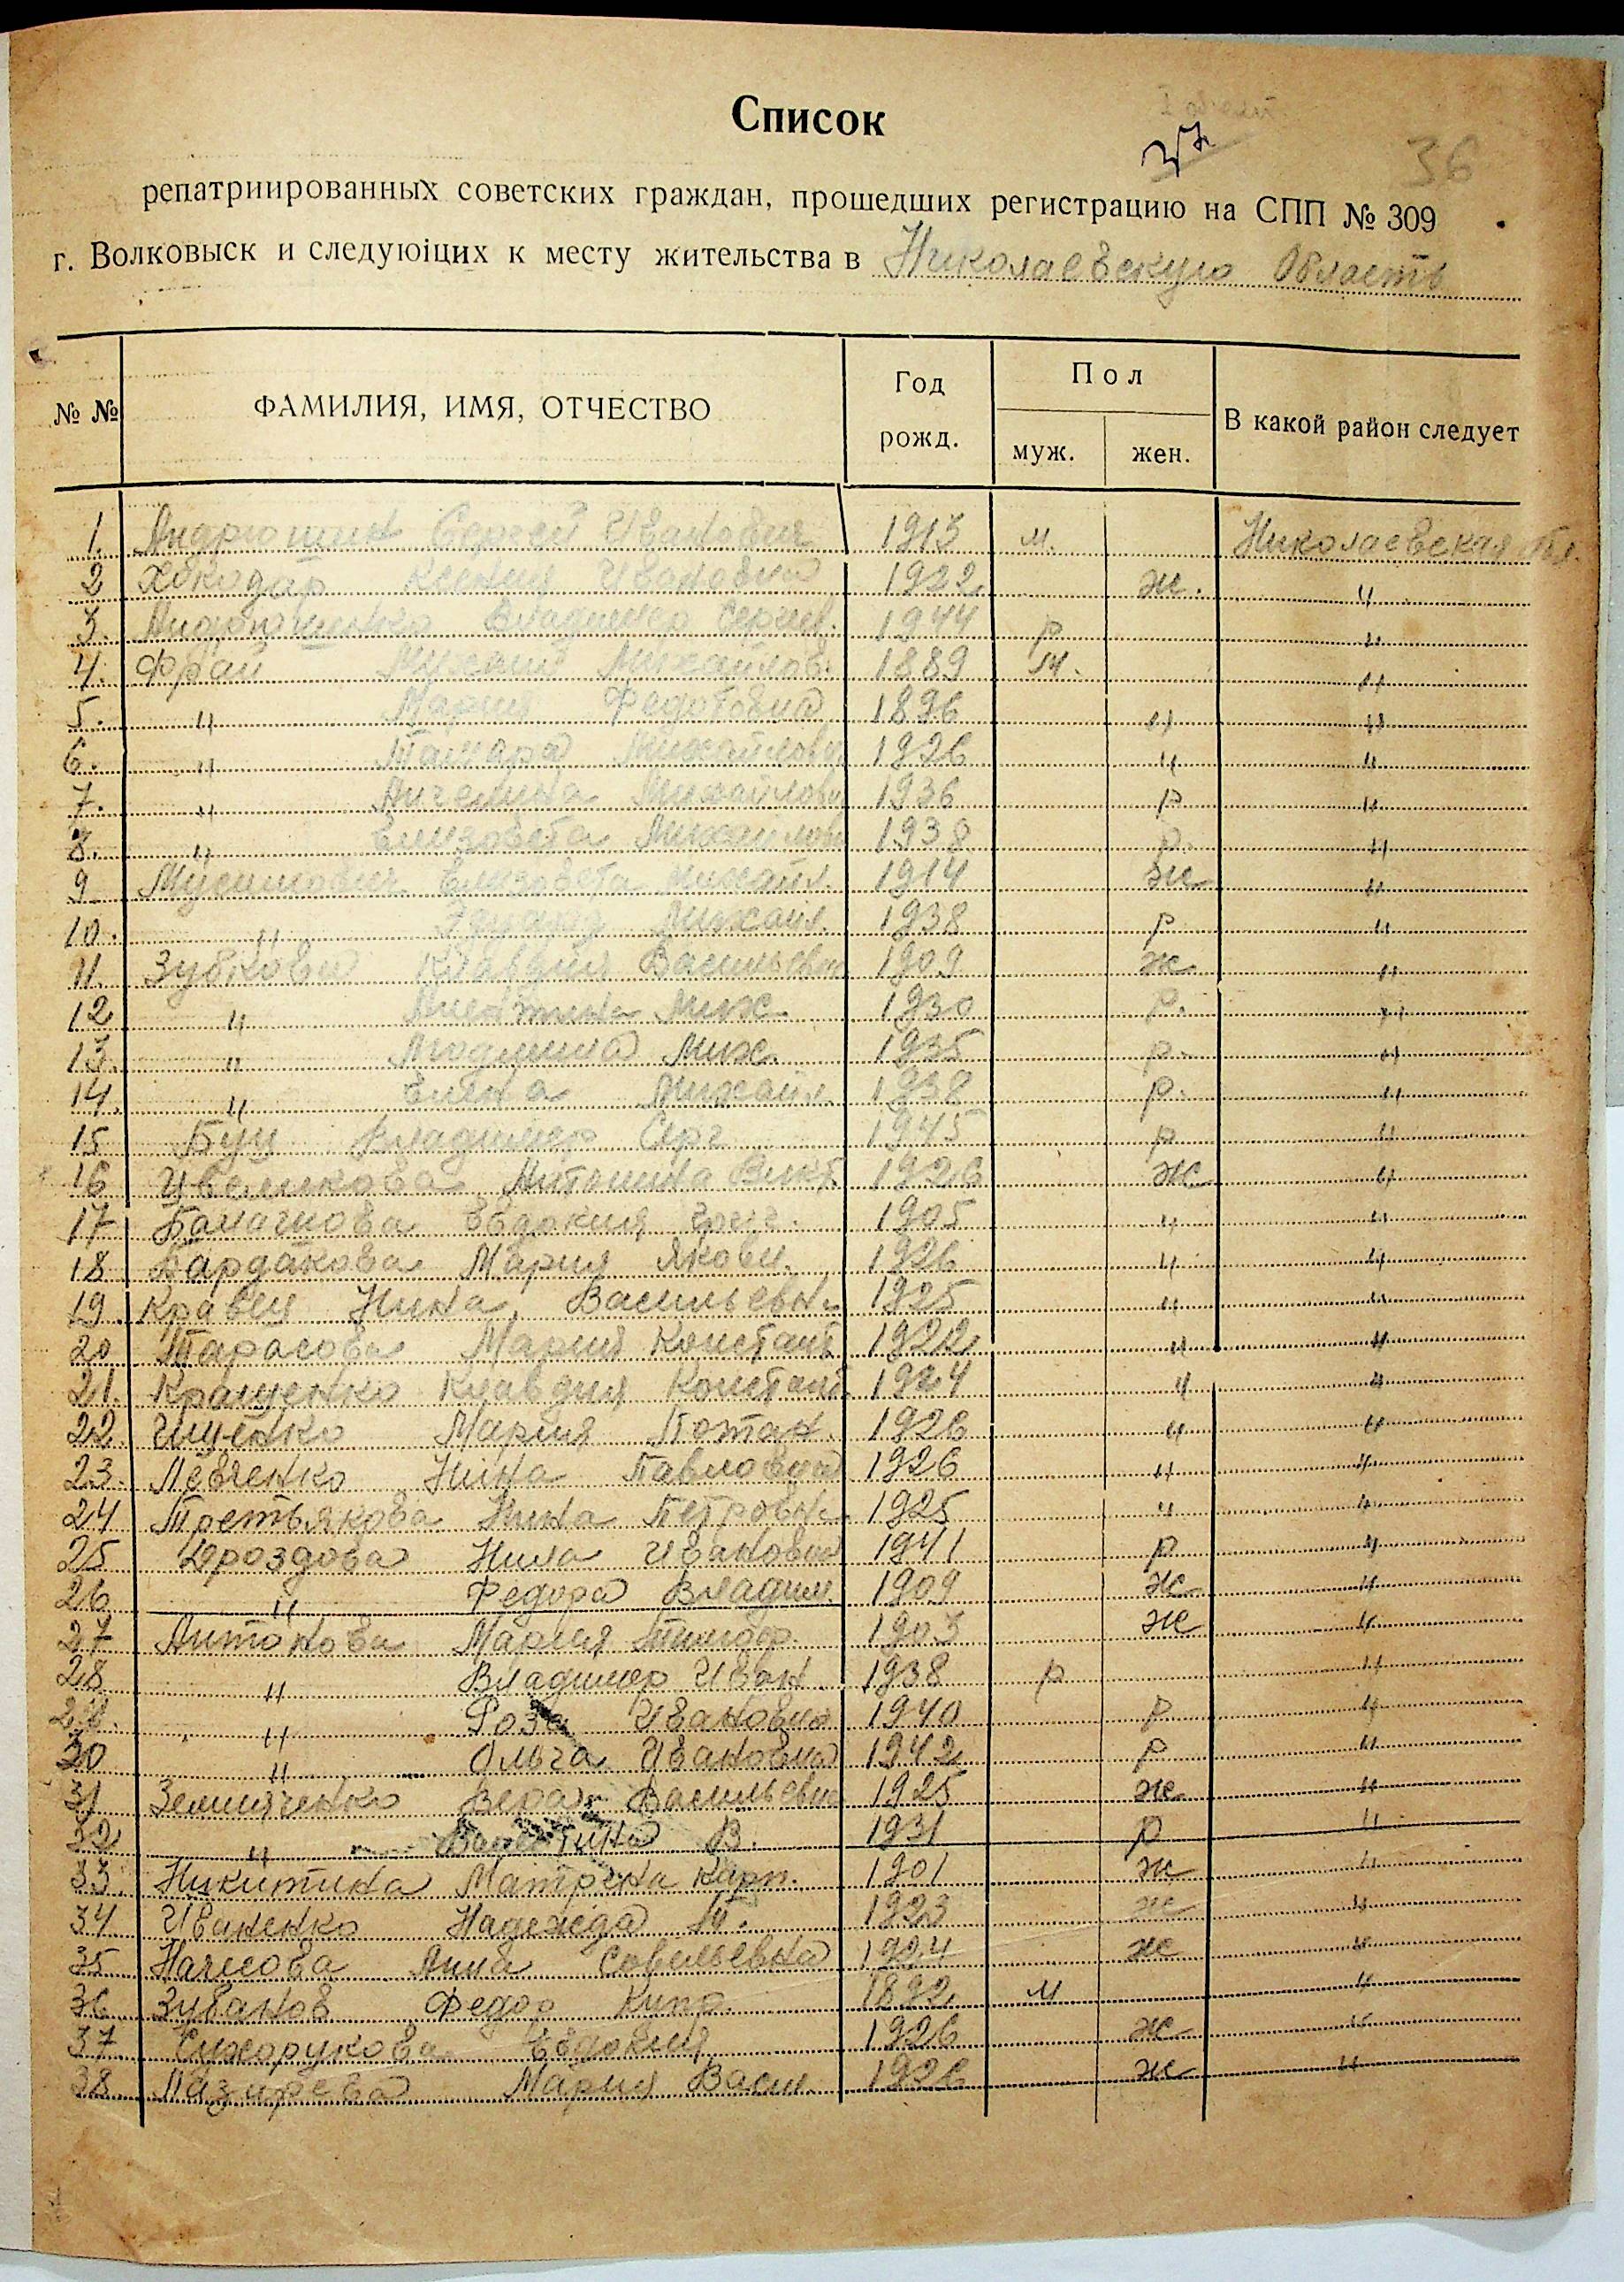 Список
37
36
репатриированных советских граждан, прошедших регистрацию на СПП № 309
г. Волковыск и следующих к месту жительства в Николаевскую Область
№ № ФАМИЛИЯ, ИМЯ, ОТЧЕСТВО Год рожд. Пол муж. жен. В какой район следует
1. Андрюшин Сергей Иванович 1913 м. Николаевская обл.
2 Ксения Ивановна 1922 ж. "
3. Владимир Сергеев. 1944 р "
4. Фрай Михайлов. 1889 м. "
5. " Мария Федотовна 1896 " "
6. " Тамара Михайловн 1926 " "
7. " Ангелина Михайловн 1936 р "
8. " Елизовета Михайловн 1938 р. "
9 Елизовета Михайл. 1914 ж "
10. " Эдуард Михайл. 1938 р "
11. Зубкова Клавдия Васильевна 1909 ж. "
12 " Мих. 1930 р. "
13. " Людмила Мих. 1935 р. "
14. " Елена Михайл. 1938 р. "
15 Буц Владимир Серг 1945 р "
16 Антонина Викт 1926 ж "
17 Евдокия Григ. 1905 " "
18 Бардакова Мария Яковл. 1926 " "
19. Кравец Нина Васильевн. 1925 " "
20 Тарасова Мария Констант 1922 " "
21. Клавдия Констант 1924 " "
22. Ищенко Мария Потап. 1926 " "
23. Левченко Нина Павловна 1926 " "
24 Третьякова Нина Петровн. 1925 " "
25 Дроздова Нила Ивановна 1941 р "
26 " Федора Владим. 1909 ж "
27 Антонова Мария Тимоф. 1903 ж "
28 " Владимир Иван. 1938 р "
29. " Роза Ивановна 1940 р "
30 " Ольга Ивановна 1942 р "
31 Земляченко Вера Васильевна 1925 ж "
32 " Валентина В. 1931 р "
33. Никитина Матрена Карп. 1901 ж "
34 Иваненко Надежда Т. 1923 ж "
35 Анна Савельевна 1924 ж "
36 Зубанов Федор Кипр. 1892 м "
37. Сухорукова Евдокия 1926 ж "
38. Лазарева Мария Васил. 1926 ж "